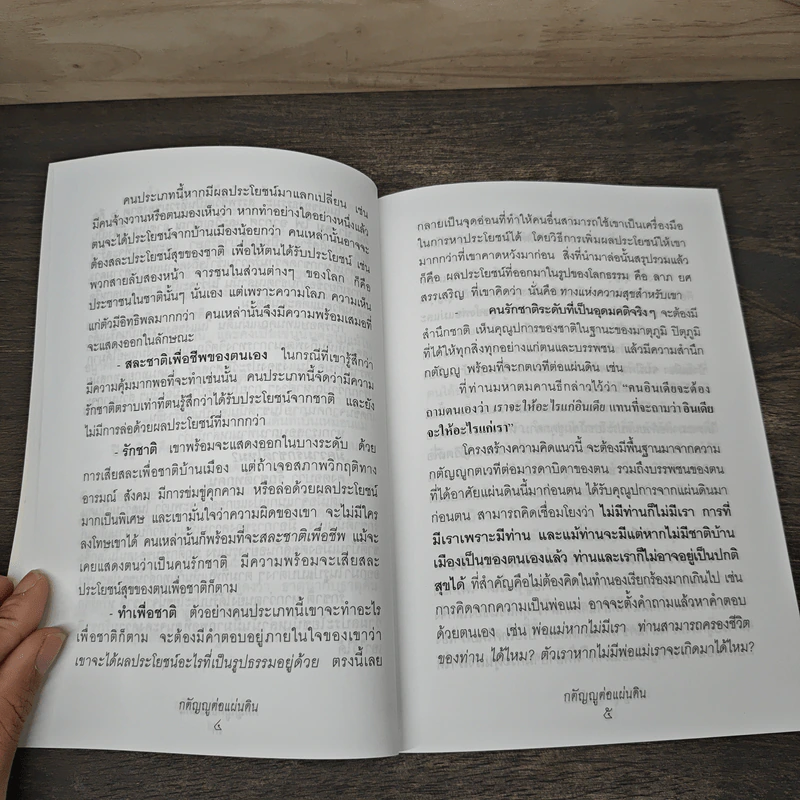 คนประเภทนี้หากมีผลประโยชน์มาแลกเปลี่ยน เช่น
มีคนจ้างวานหรือตนมองเห็นว่า หากทำอย่างใดอย่างหนึ่งแล้ว
ตนจะได้ประโยชน์จากบ้านเมืองน้อยกว่า คนเหล่านั้นอาจจะ
ต้องสละประโยชน์สุขของชาติ เพื่อให้ตนได้รับประโยชน์ เช่น
พวกสายลับสองหน้า จารชนในส่วนต่างๆ ของโลก ก็คือ
ประชาชนในชาตินั้นๆ นั่นเอง แต่เพราะความโลภ ความเห็น
แก่ตัวมีอิทธิพลมากกว่า คนเหล่านั้นจึงมีความพร้อมเสมอที่
จะแสดงออกในลักษณะ
- สละชาติเพื่อชีพของตนเอง ในกรณีที่เขารู้สึกว่า
มีความคุ้มมากพอที่จะทำเช่นนั้น คนประเภทนี้จัดว่ามีความ
รักชาติตราบเท่าที่ตนรู้สึกว่าได้รับประโยชน์จากชาติ และยัง
ไม่มีการล่อด้วยผลประโยชน์ที่มากกว่า
- รักชาติ เขาพร้อมจะแสดงออกในบางระดับ ด้วย
การเสียสละเพื่อชาติบ้านเมือง แต่ถ้าเจอสภาพวิกฤติทาง
อารมณ์ สังคม มีการข่มขู่คุกคาม หรือล่อด้วยผลประโยชน์
มากเป็นพิเศษ และเขามั่นใจว่าความผิดของเขา จะไม่มีใคร
ลงโทษเขาได้ คนเหล่านั้นก็พร้อมที่จะสละชาติเพื่อชีพ แม้จะ
เคยแสดงตนว่าเป็นคนรักชาติ มีความพร้อมจะเสียสละ
ประโยชน์สุขของตนเพื่อชาติก็ตาม
- ทำเพื่อชาติ ตัวอย่างคนประเภทนี้เขาจะทำอะไร
เพื่อชาติก็ตาม จะต้องมีคำตอบอยู่ภายในใจของเขาว่า
เขาจะได้ผลประโยชน์อะไรที่เป็นรูปธรรมอยู่ด้วย ตรงนี้เลย
กตัญญูต่อแผ่นดิน
๔
กลายเป็นจุดอ่อนที่ทำให้คนอื่นสามารถใช้เขาเป็นเครื่องมือ
ในการหาประโยชน์ได้ โดยวิธีการเพิ่มผลประโยชน์ให้เขา
มากกว่าที่เขาคาดหวังมาก่อน สิ่งที่นำมาล่อนั้นสรุปรวมแล้ว
ก็คือ ผลประโยชน์ที่ออกมาในรูปของโลกธรรม คือ ลาภ ยศ
สรรเสริญ ที่เขาคิดว่า นั่นคือ ทางแห่งความสุขสำหรับเขา
- คนรักชาติระดับที่เป็นอุดมคติจริงๆ จะต้องมี
สำนึกชาติ เห็นคุณูปการของชาติในฐานะของมาตุภูมิ ปิตุภูมิ
ที่ได้ให้ทุกสิ่งทุกอย่างแก่ตนและบรรพชน แล้วมีความสำนึก
กตัญญู พร้อมที่จะกตเวทีต่อแผ่นดิน เช่น
ที่ท่านมหาตมคานธีกล่าวไว้ว่า “คนอินเดียจะต้อง
ถามตนเองว่า เราจะให้อะไรแก่อินเดีย แทนที่จะถามว่าอินเดีย
จะให้อะไรแก่เรา”
โครงสร้างความคิดแนวนี้ จะต้องมีพื้นฐานมาจากความ
กตัญญูกตเวทีต่อมารดาบิดาของตน รวมถึงบรรพชนของตน
ที่ได้อาศัยแผ่นดินนี้มาก่อนตน ได้รับคุณูปการจากแผ่นดินมา
ก่อนตน สามารถคิดเชื่อมโยงว่า ไม่มีท่านก็ไม่มีเรา การที่
มีเราเพราะมีท่าน และแม้ท่านจะมีแต่หากไม่มีชาติบ้าน
เมืองเป็นของตนเองแล้ว ท่านและเราก็ไม่อาจอยู่เป็นปกติ
สุขได้ ที่สำคัญคือไม่ต้องคิดในทำนองเรียกร้องมากเกินไป เช่น
การคิดจากความเป็นพ่อแม่ อาจจะตั้งคำถามแล้วหาคำตอบ
ด้วยตนเอง เช่น พ่อแม่หากไม่มีเรา ท่านสามารถครองชีวิต
ของท่าน ได้ไหม? ตัวเราหากไม่มีพ่อแม่เราจะเกิดมาได้ไหม?
กตัญญูต่อแผ่นดิน
๕